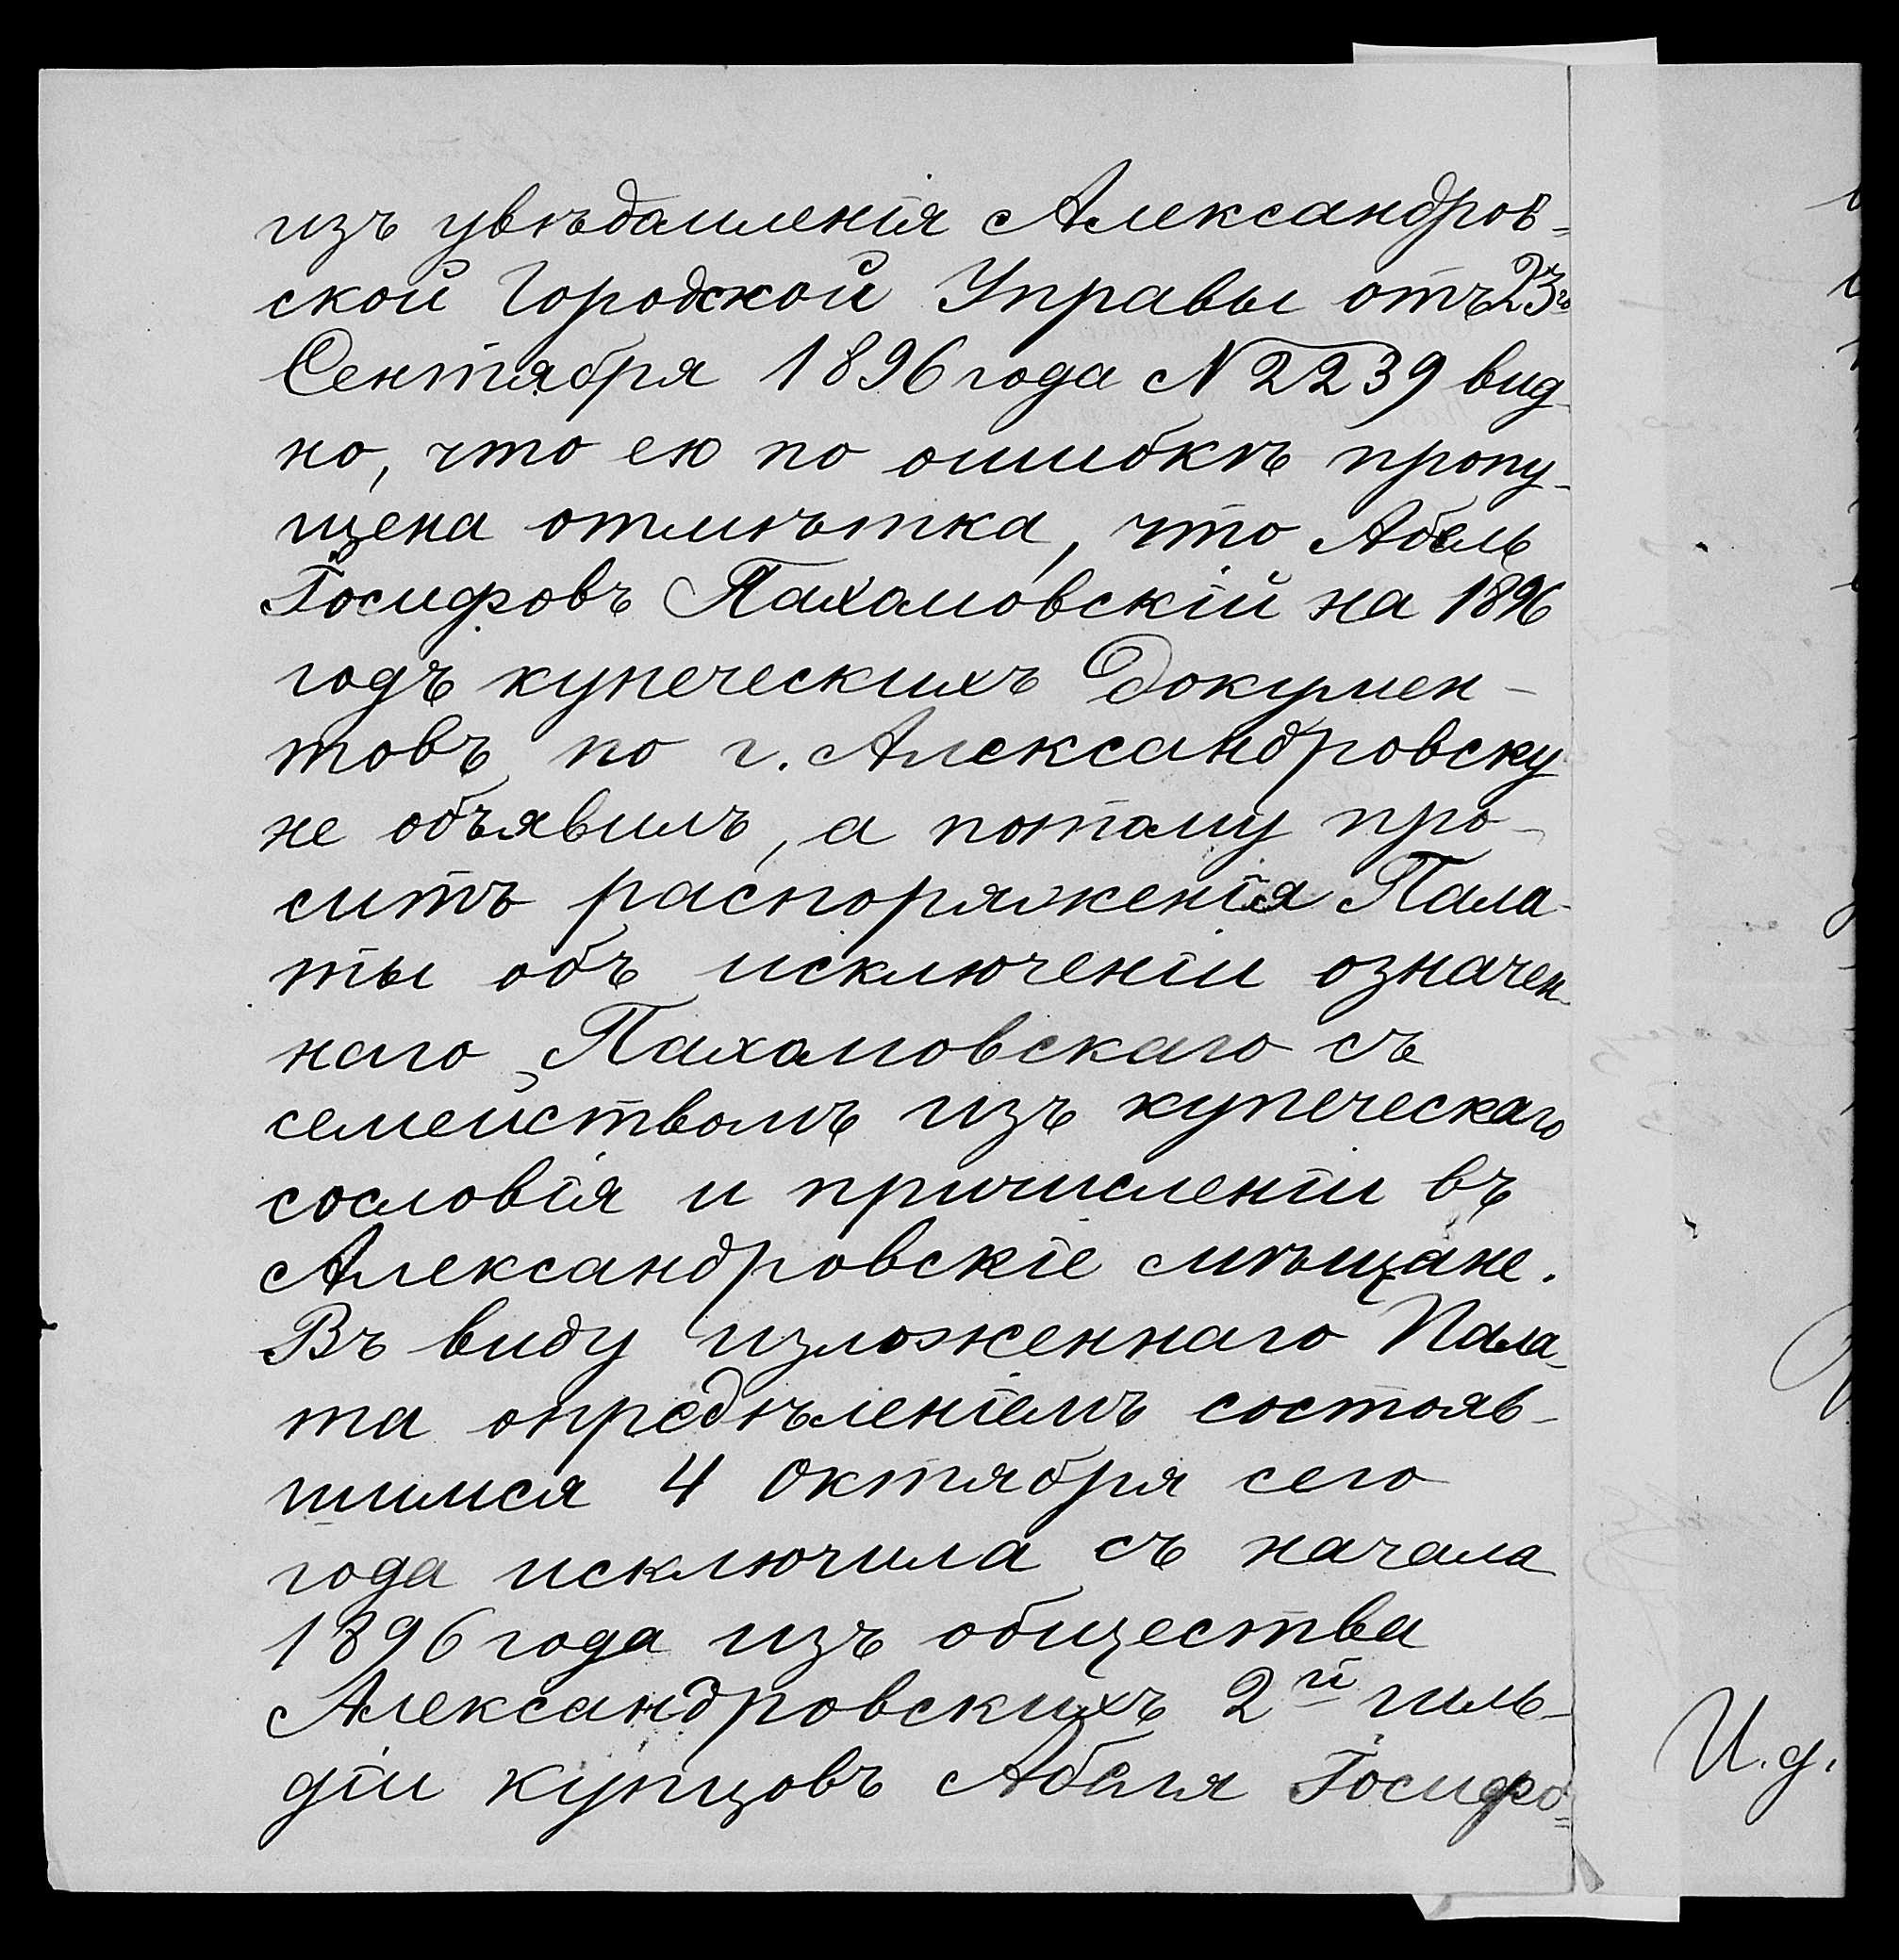 изъ увѣдомленія Александров-
ской Городской Управы отъ 23го
Сентября 1896 года № 2239 вид-
но, что ею по ошибкѣ пропу-
щена отмѣтка, что Абель
Іосифовъ Пахомовскій на 1896
годъ купеческихъ докумен-
товъ по г. Александровску
не объявилъ, а потому про-
ситъ распоряженія Пала-
ты объ исключеніи означен-
наго Пахомовскаго съ
семействомъ изъ купеческаго
сословія и причисленіи въ
Александровскіе мѣщане.
Въ виду изложеннаго Пала-
та опредѣленіемъ состояв-
шимся 4 Октября сего
года исключила съ начала
1896 года изъ общества
Александровскихъ 2й гиль-
діи купцовъ Абеля Іосифо-
И.д.